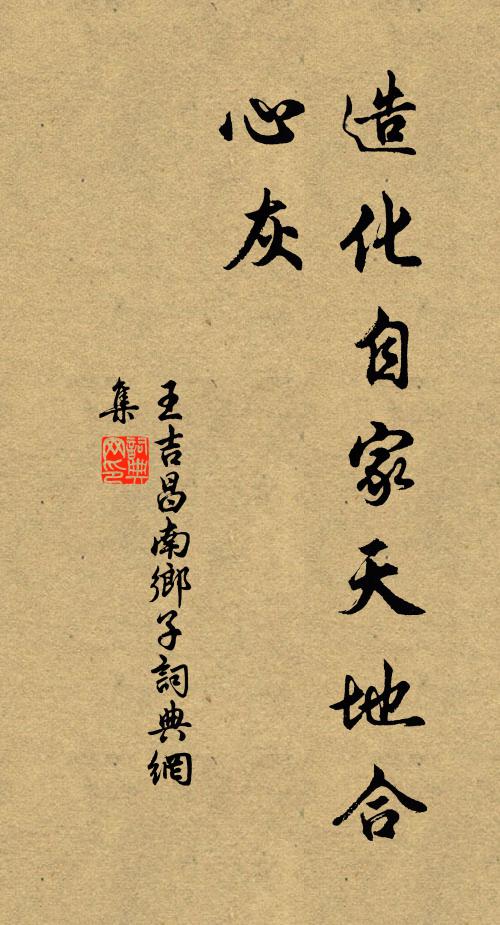 造化自家天地合
心灰
王吉昌南鄉子詞典網
集
詞典
网印